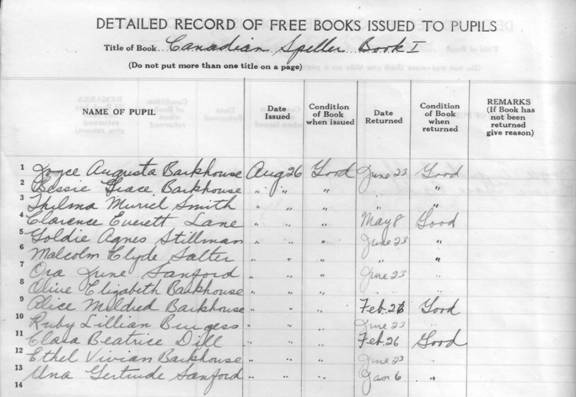 DETAILED RECORD OF FREE BOOKS ISSUED TO PUPILS
Title of Book.. Canadian Speller Book I
(Do not put more than one title on a page)
NAME OF PUPIL Date Issued Condition of Book when issued Date Returned Condition of Book when returned REMARKS (If Book has not been returned give reason)
1 Joyce Augusta Barkhouse Aug 26 Good June 23 Good
2 Bessie Grace Barkhouse " " " " "
3 Thelma Muriel Smith " " " " "
4 Clarence Everett Lane " " " May 8 Good
5 Goldie Agnes Stillman " " " June 23 "
6 Malcolm Clyde Salter " " " " "
7 Ora June Sanford " " " June 23 "
8 Olive Elizabeth Barkhouse " " " " "
9 Alice Mildred Barkhouse " " " Feb. 26 Good
10 Ruby Lillian Burgess " " " June 23 "
11 Clara Beatrice Dill " " " Feb 26 Good
12 Ethel Vivian Barkhouse " " " June 23 "
13 Una Gertrude Sanford " " " Jan 6 "
14